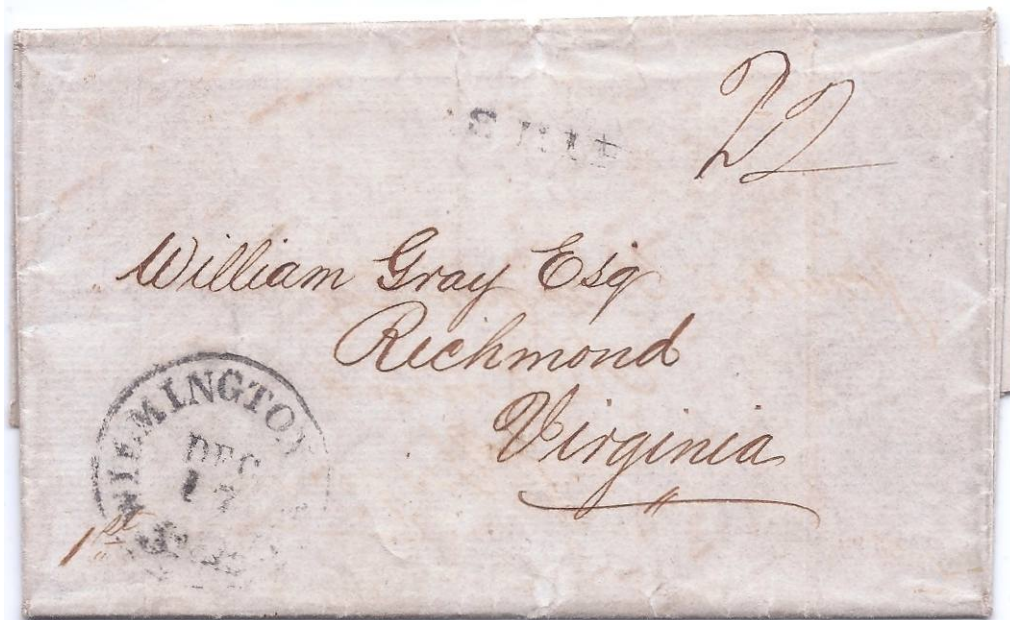 22
William Gray Esq
Richmond
Virginia
WILMINGTON
DEC
17
1st